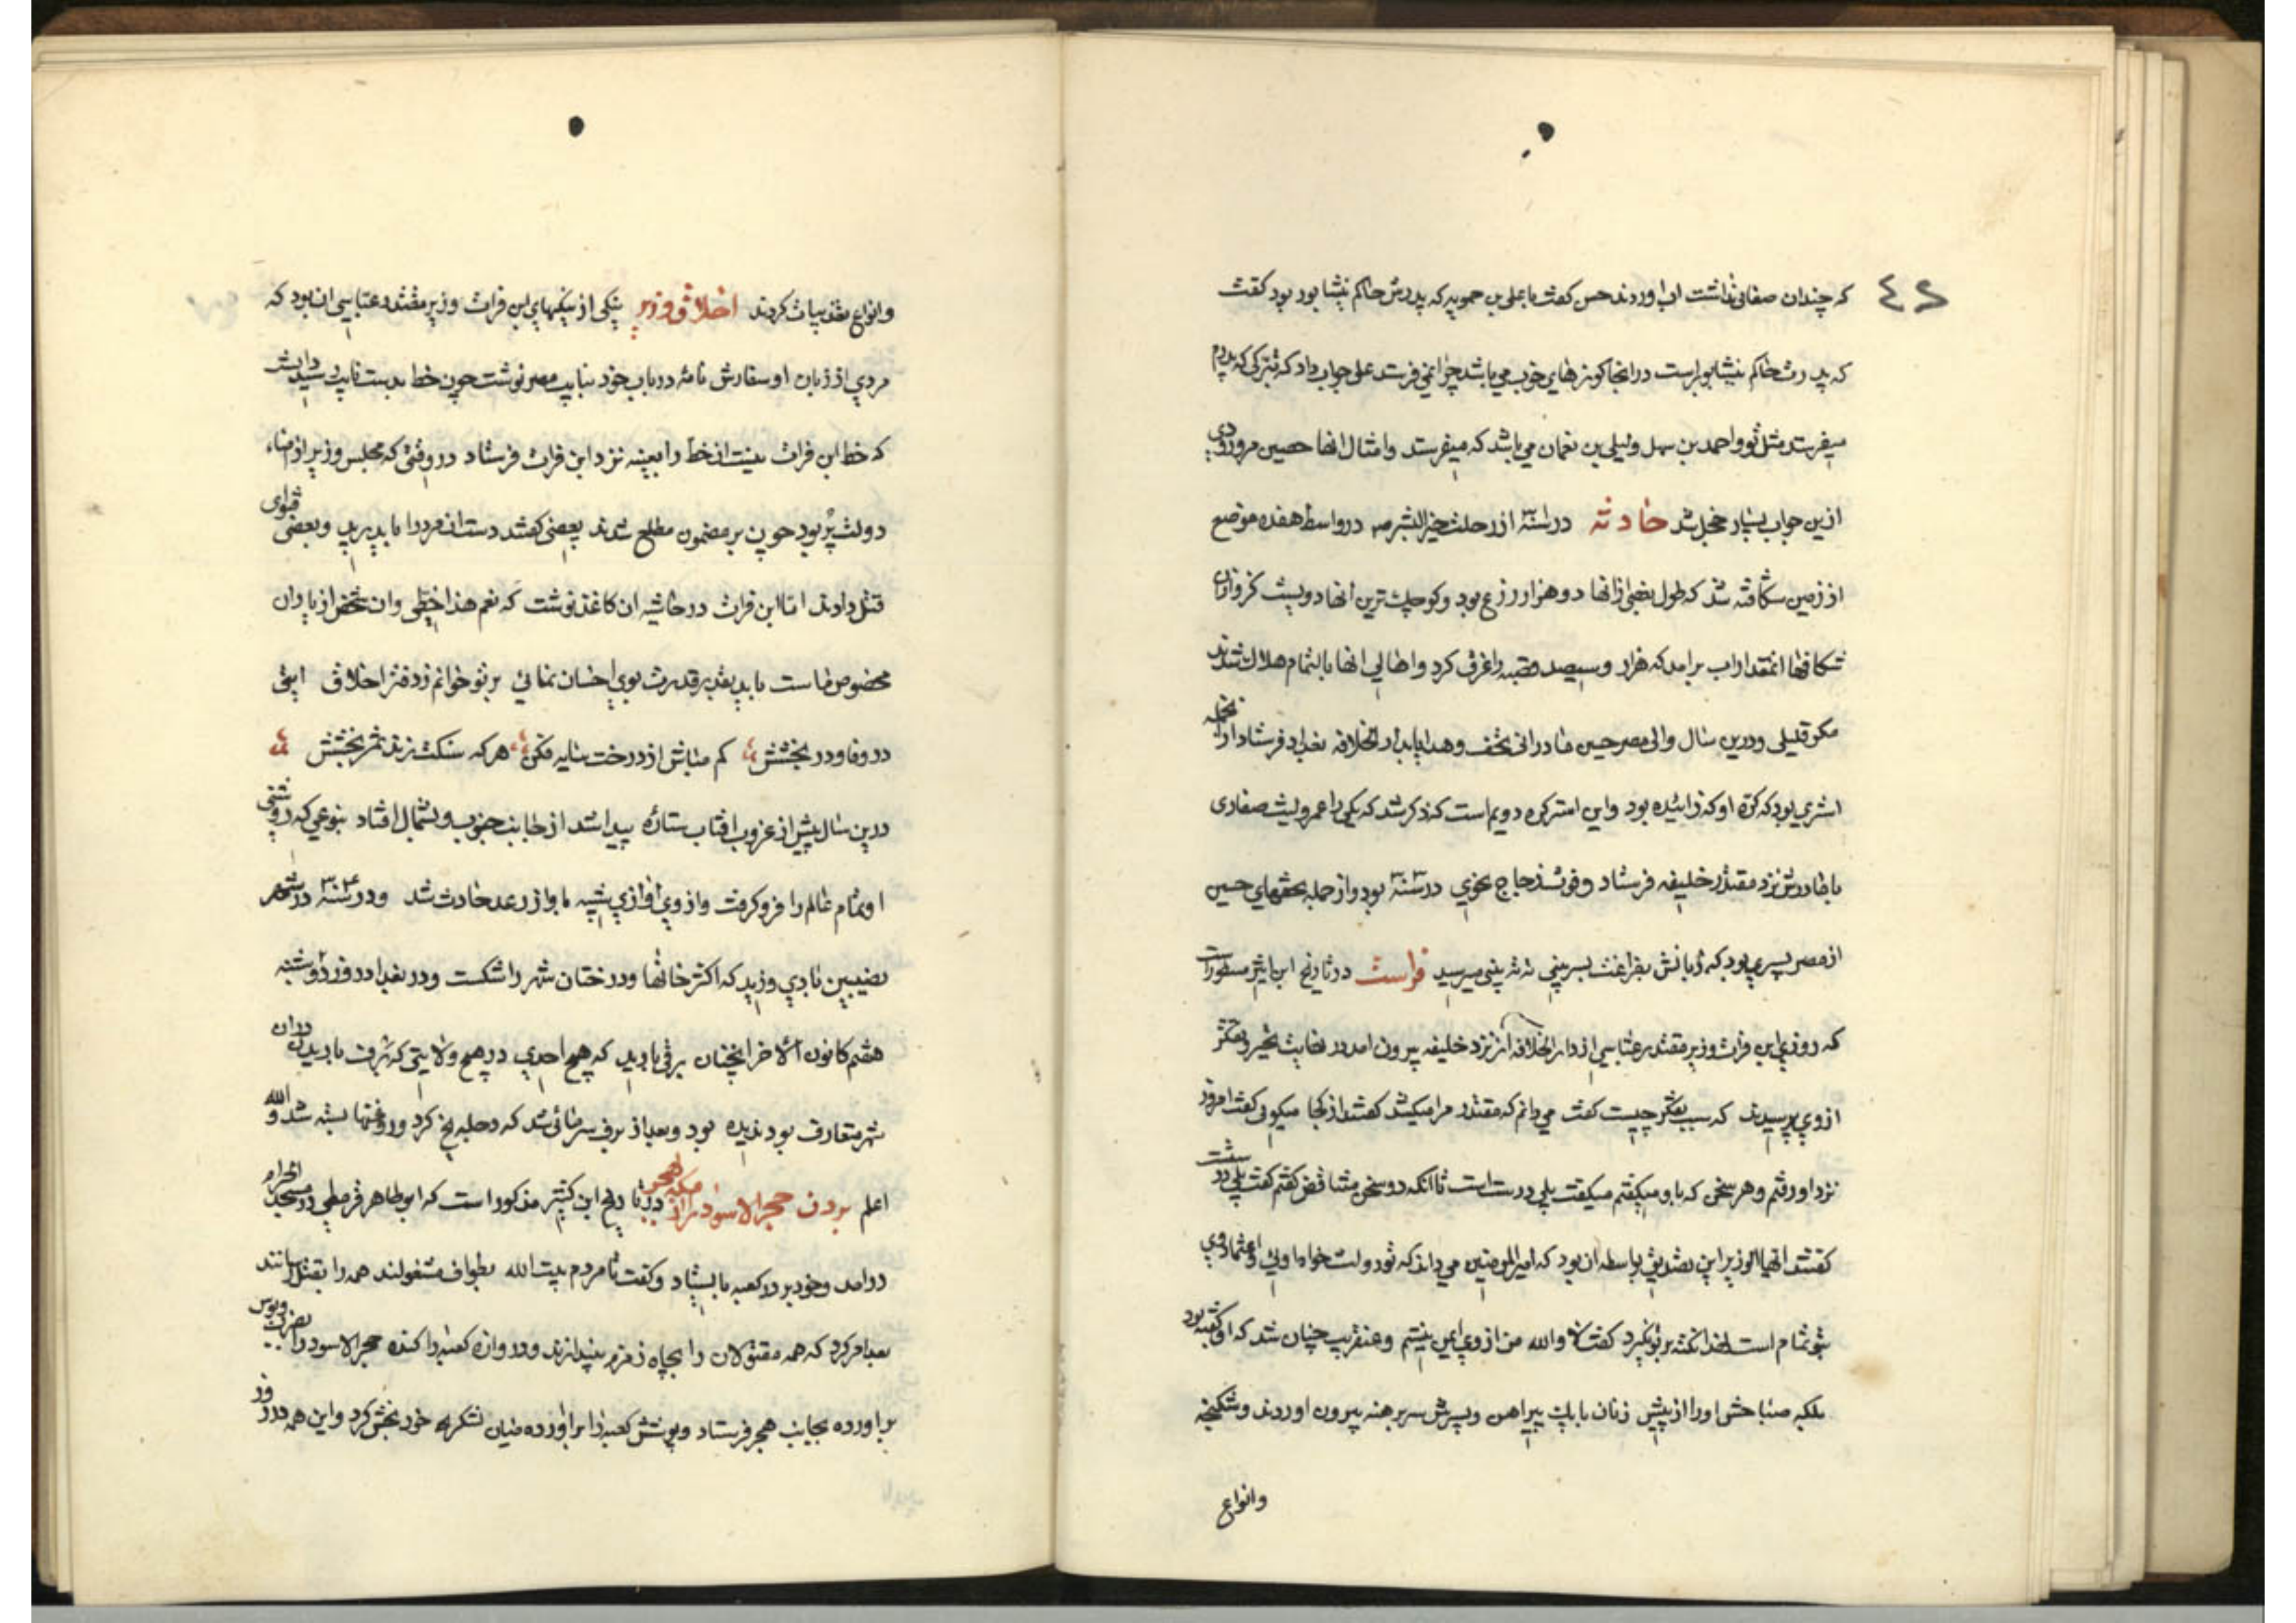 ٤٤
که چندان صفائی نداشت اب اوردند حسن کفت با علی بن حمویه که پدرش حاکم نیشابور بود کفت
که پدرت حاکم نیشابور است در انجا کوزهای خوب می باشد چرا نمی فرستد علی جواب داد که تبرکی که پدرم
میفرستد مثل تو و احمد بن سهل و لیلی بن نعمان می باشد که میفرستد و امثال انها حصین مرورودی
ازین جواب بسیار خجل شد حادثه در سنه از رحلت خیر البشر صه در واسط هفده موضع
از زمین شکافته شد که طول بعضی از انها دو هزار زرع بود و کوچک ترین انها دویست کز و ازان
شکافها انمقدار اب برامد که هزار و سیصد قصبه را غرق کرد و اهالی انها بالتمام هلاک شدند
مکر قلیلی و درین سال والی مصر حسین مادرانی تحف و هدایا بدار الخلافه بغداد فرستاد از انجمله
استری بود که کره او که زائیده بود و این استر کره دویم است که ذکر شد که یکی را عمرو لیث صفاری
با مادرش نزد مقتدر خلیفه فرستاد و فوت زجاج نحوی در سنه بود و از جمله تحفهای حسین
از مصر پسری بود که زبانش بفراغت بسر بینی میرسید فراست در تاریخ ابن اثیر مسطور است
که روزی ابن فرات وزیر مقتدر عباسی از دار الخلافه از نزد خلیفه بیرون امد در نهایت تحیر و تفکر
از وی پرسیدند که سبب تفکر چیست کفت می دانم که مقتدر مرا میکشد کفتند از کجا میکوئی کفت امروز
نزد او رفتم و هر سخن که با او میکفتم میکفت بلی درست است تا انکه دو سخن متناقض کفتم کفت بلی درست
کفتند ایها الوزیر این تصدیق بواسطه ان بود که امیر المومنین می داند که تو دولت خواه اوئی و اعتماد وی
بتو تمام است کفت لا والله من از وی ایمن نیستم و عنقریب چنان شد که او کفته بود
بلکه صباحش او را از پیش زنان با یک پیراهن و پسرش سر برهنه بیرون اوردند و شکنجه
وانواع
وانواع تعذیبات کردند اخلاق وزیر یکی از نیکیهای ابن فرات وزیر مقتدر عباسی ان بود که
مردی از زبان او سفارش نامه در باب خود بنایب مصر نوشت چون خط بدست نایب رسید دانست
که خط ابن فرات نیست ان خط را بعینه نزد ابن فرات فرستاد در وقتی که مجلس وزیر از امناء
دولت پر بود چون بر مضمون مطلع شدند بعضی کفتند دست ان مرد را باید برید و بعضی فتوای
قتل دادند اما ابن فرات در حاشیه ان کاغذ نوشت که نعم هذا خطی و ان شخص از یاران
مخصوص ماست باید بقدر قدرت بوی احسان نمائی بر تو خوانم ز دفتر اخلاق ایتی
در وفا و در بخشش کم مباش از درخت سایه فکن هر که سنکت زند ثمر بخشش
درین سال پیش از غروب افتاب ستاره پیدا شد از جانب جنوب و بشمال افتاد بنوعی که روشنی
او تمام عالم را فرو کرفت و از وی اوازی شبیه باواز رعد حادث شد و در سنه ۳۰۴ در شهر
نصیبین بادی وزید که اکثر خانها و درختان شهر را شکست و در بغداد روز دوشنبه
هفتم کانون الاخر انچنان برفی بارید که هیچ احدی در هیچ ولایتی که برف باریدن دران
شهر متعارف بود ندیده بود و بعد از برف سرمائی شد که دجله یخ کرد و روغنها بسته شد و الله
اعلم بردن حجر الاسود را از مکه بهجر در تاریخ ابن کثیر مذکور است که ابو طاهر قرمطی در مسجد الحرام
در امد و خود بر در کعبه بایستاد و کفت تا مردم بیت الله بطواف مشغولند همه را بقتل رسانند
بعد امر کرد که همه مقتولان را بچاه زمزم بیندازند و دروازه کعبه را کنده حجر الاسود را بضرب دبوس
براورده بجانب هجر فرستاد و پوشش کعبه را براورده میان لشکریه خود بخش کرد و این همه در روز